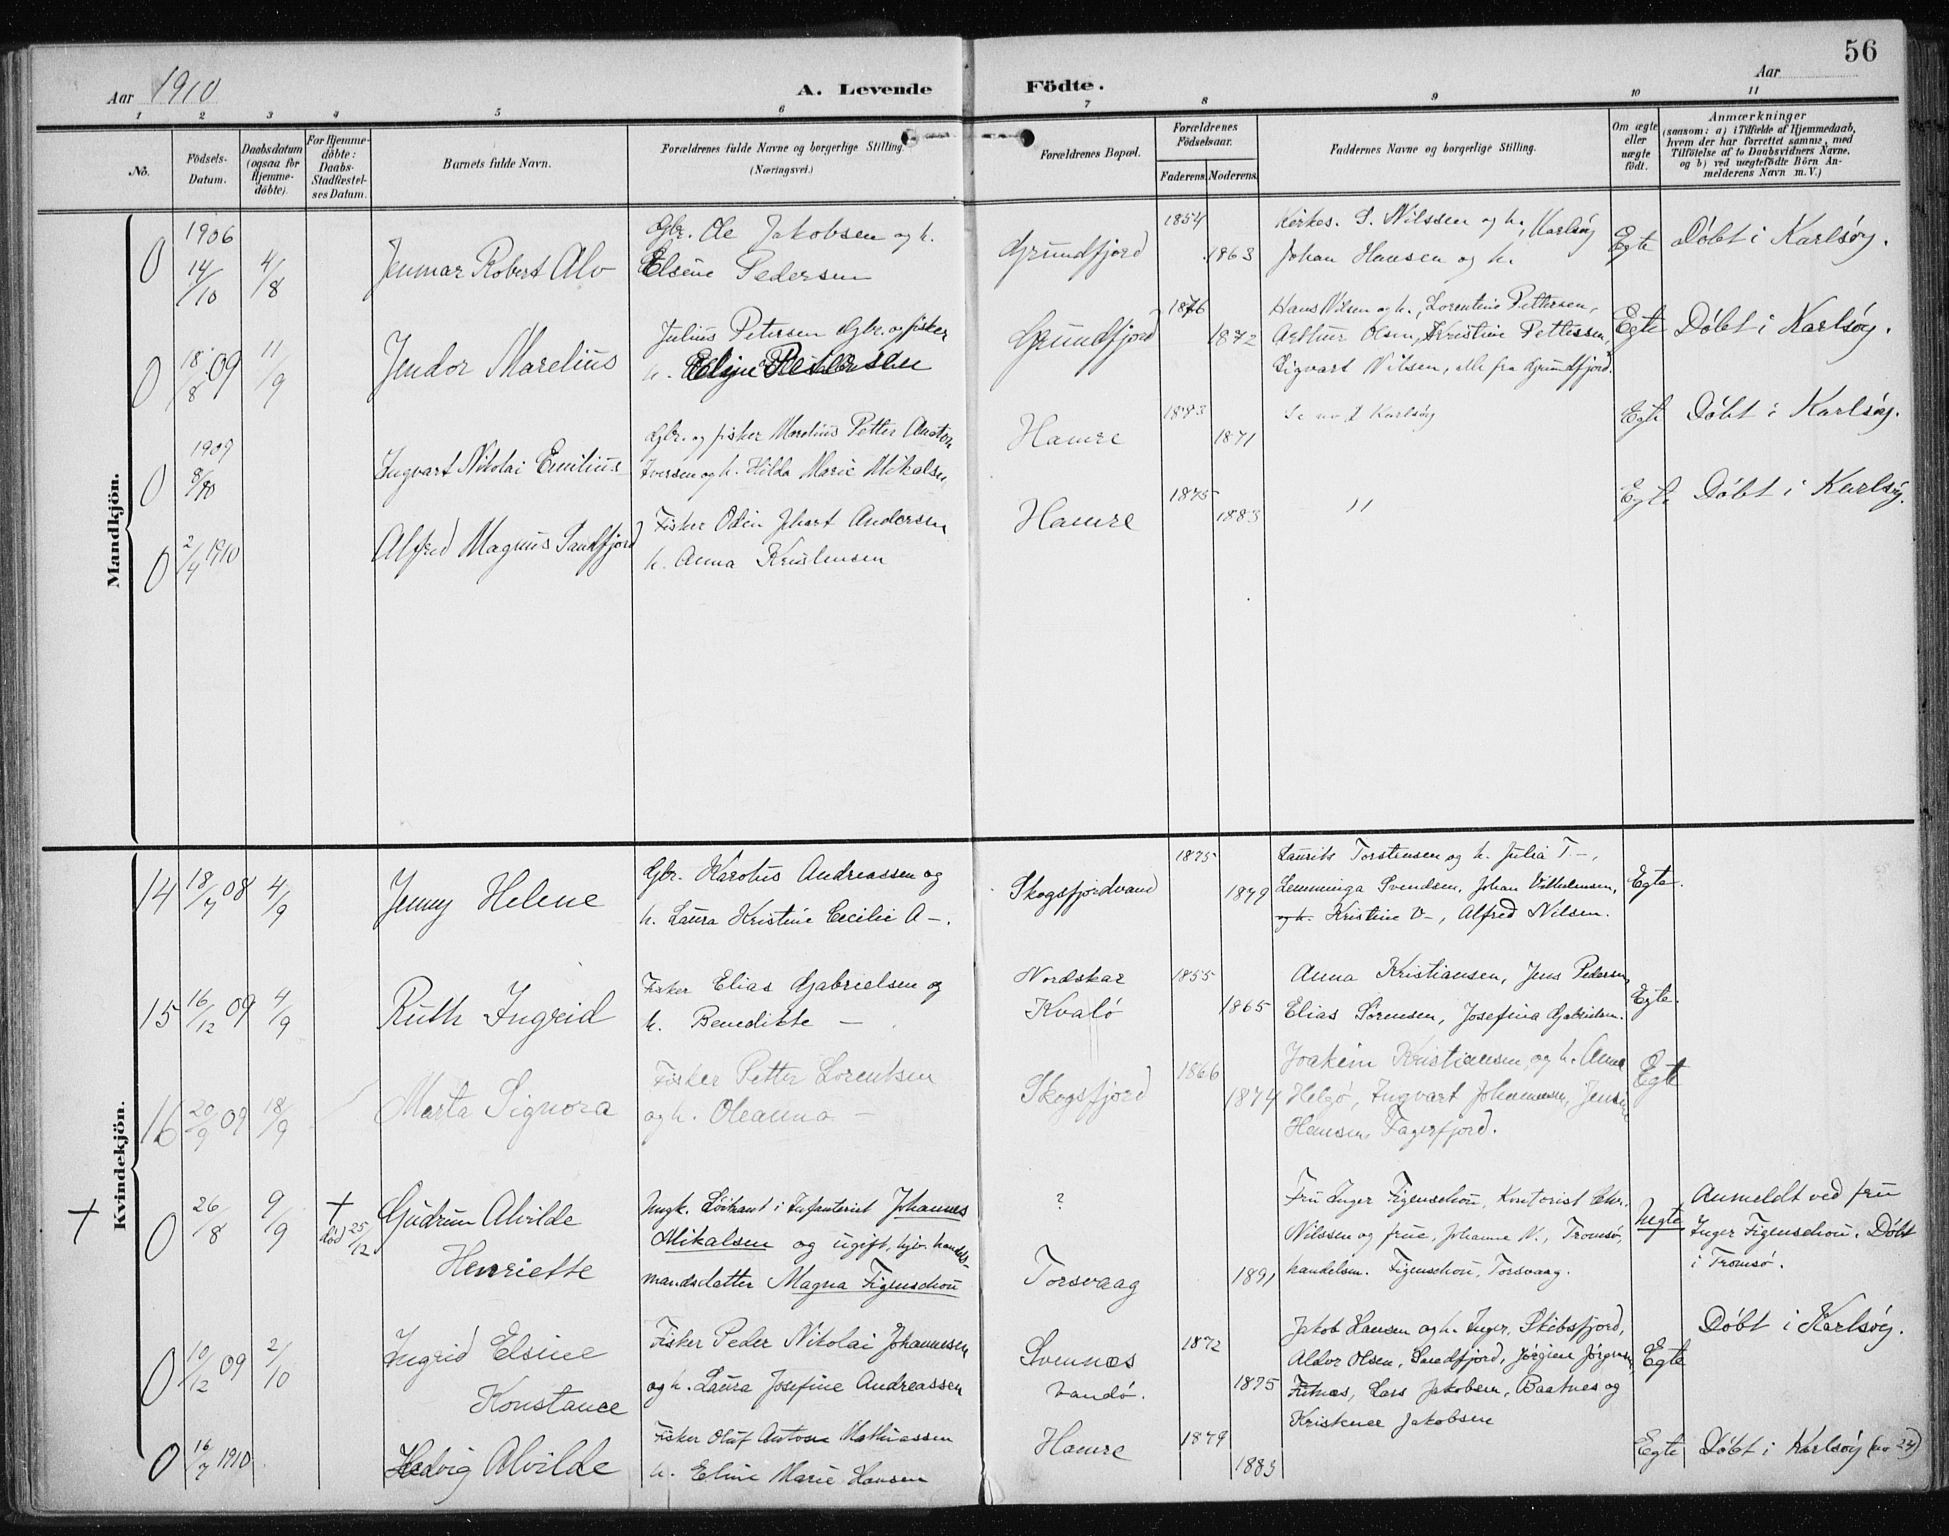 56
Aar 1910
A. Levende Födte.
Aar
1 2 3 4 5 6 7 8 9 10 11
No.
Födsels-Datum.
Daabsdatum (ogsaa for Hjemme-döbte).
For Hjemme-döbte: Daabs-Stadfæstel-ses Datum.
Barnets fulde Navn.
Forældrenes fulde Navne og borgerlige Stilling.
(Næringsvei.)
Forældrenes Bopæl.
Forældrenes Födselsaar.
Faderens. Moderens.
Faddernes Navne og borgerlige Stilling.
Om ægte eller uægte födt.
Anmærkninger
(saasom: a) i Tilfælde af Hjemmedaab,
hvem der har forrettet samme, med
Tilföielse af to Daabsvidners Navne,
og b) ved uægtefödte Börn An-
melderens Navn m. V.)
Mandkjön.
0 1906 14/10 4/8 Jenmar Robert Alv
Gbr. Ole Jakobsen og h.
Elsine Pedersen
Grundfjord 1854 1863
Kirkes. S. Nilssen og h., Karlsöy
Johan Hansen og h.
Egte Döbt i Karlsöy.
0 18/8 09 11/9 Jendor Marelius
Julius Petersen Gbr. og fisker
h. Petersen
Grundfjord 1876 1872
Hans Nilsen og h., Lorentine Pettersen,
Arthur Olsen, Kristine Pettersen,
Sigvart Nilsen, alle fra Grundfjord.
Egte Döbt i Karlsöy.
0 1909 8/10 Ingvart Nikolai Emilius
Gbr. og fisker Marelius Petter Anton
Iversen og h. Hilda Marie Mikalsen
Hamre 1873 1871
Se no Karlsöy
Egte Döbt i Karlsöy.
0 2/4 1910 Alfred Magnus Sandfjord
Fisker Odin Jhart Andersen
h. Anna Kristensen
Hamre 1875 1883
"
Egte Döbt i Karlsöy.
Kvindekjön.
14 18/7 08 4/9 Jenny Helene
Gbr. Karolus Andreassen og
h. Laura Kristine Cecilie A–.
Skogsfjordvand 1875 1879
Laurits Torstensen og h. Julia T–,
Lemminga Svendsen, Johan Vilhelmsen,
og h. Kristine V–, Alfred Nilsen.
Egte.
15 16/12 09 4/9 Ruth Ingrid
Fisker Elias Gabrielsen og
h. Benedikte –
Nordskar
Kvalö 1855 1865
Anna Kristiansen, Jens Pedersen,
Elias Sörensen, Josefina Gabrielsen.
Egte.
16 20/9 09 18/9 Marta Signora
Fisker Petter Lorentsen
og h. Oleanna –
Skogsfjord 1866 1874
Joakim Kristiansen og h. Anna
Helgö, Ingvart Johannesen, Jensine
Hansen, Fagerfjord.
Egte
+ 0 26/8 9/9 + död 25/12 Gudrun Alvilde
Henriette
Ungk. Löitnant i Infanteriet Johannes
Mikalsen og ugift, hjv. handels-
mandsdatter Magna Figenschou
? Torsvaag 1891
Fru Inger Figenschou, Kontorist Chr.
Nilssen og frue, Johanne N., Tromsö,
handelsm. Figenschou, Torsvaag.
Uegte
Anmeldt ved fru
Inger Figenschou. Döbt
i Tromsö.
0 10/12 09 2/10 Ingrid Elsine
Konstance
Fisker Peder Nikolai Johannesen
og h. Laura Josefine Andreassen
Svennes
vandö. 1872 1875
Jakob Hansen og h. Inger, Skibsfjord,
Aldor Olsen, Sandfjord, Jörgine Jörgensen,
Futnæs, Lars Jakobsen, Baatnes og
Jakobsen
Egte
Döbt i Karlsöy.
0 16/7 1910 Hedvig Alvilde
Fisker Oluf Anton Mathiassen
h. Eline Marie Hansen
Hamre 1879 1883
Egte Döbt i Karlsöy (no 24)